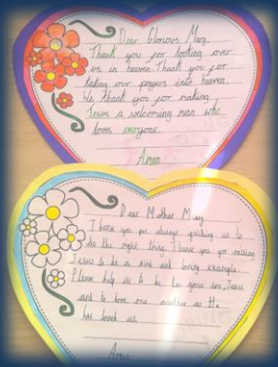 Dear Glorious Mary,
Thank you for looking over
us in heaven. Thank you for
taking our prayers into heaven.
We thank you for making
Jesus a welcoming man who
loves everyone.
Amen
Dear Mother Mary,
Thank you for always guiding us to
do the right thing. Thank you for making
Jesus to be a kind and loving example.
Please help us to be like your son, Jesus
and to love one another as He
has loved us.
Amen